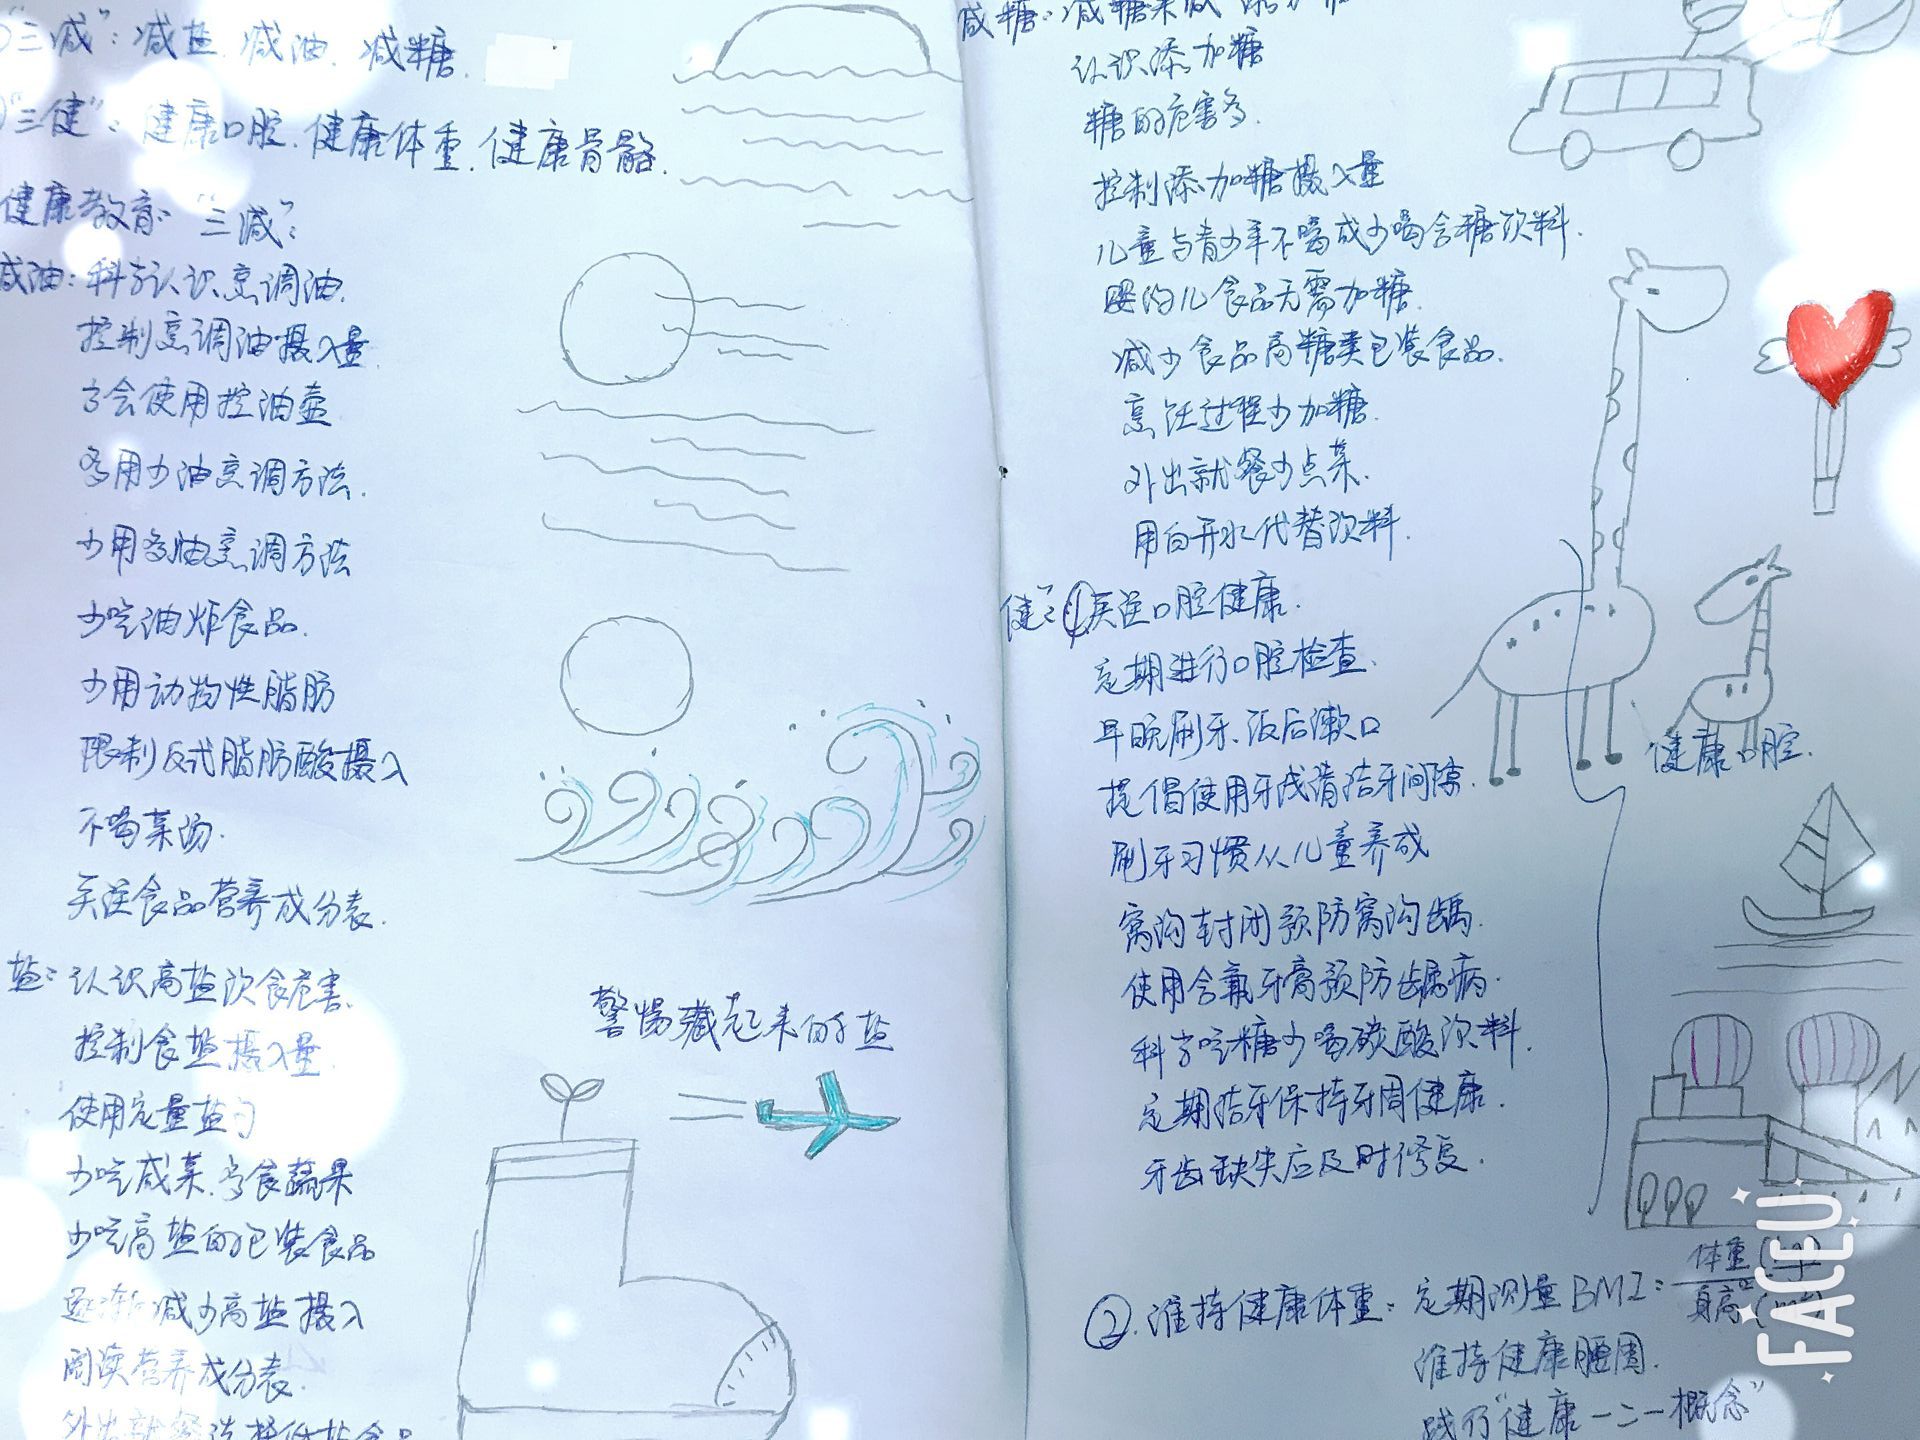 "三减"：减盐、减油、减糖.
"三健"：健康口腔、健康体重、健康骨骼.
健康教育："三减"：
减油：科学认识烹调油.
控制烹调油摄入量.
学会使用控油壶
多用少油烹调方法.
少用多油烹调方法
少吃油炸食品.
少用动物性脂肪
限制反式脂肪酸摄入
不喝菜汤.
关注食品营养成分表.
盐：认识高盐饮食危害.
控制食盐摄入量.
使用定量盐勺
少吃咸菜.多食蔬果
少吃高盐的包装食品
逐渐减少高盐摄入
阅读营养成分表.
外出就餐选择低盐食品
警惕藏起来的盐
减糖：减糖
认识添加糖
糖的危害多.
控制添加糖摄入量
儿童与青少年不喝或少喝含糖饮料.
婴幼儿食品无需加糖.
减少食品高糖类包装食品.
烹饪过程少加糖.
外出就餐少点菜.
用白开水代替饮料.
健"：①关注口腔健康.
定期进行口腔检查.
早晚刷牙、饭后漱口
提倡使用牙线清洁牙间隙.
刷牙习惯从儿童养成
窝沟封闭预防窝沟龋.
使用含氟牙膏预防龋病.
科学吃糖少喝碳酸饮料.
定期洁牙保持牙周健康.
牙齿缺失应及时修复.
健康口腔.
②.维持健康体重：定期测量BMI=体重(kg)/身高²(m²)
维持健康腰围.
践行"健康一二一概念"
FACEU